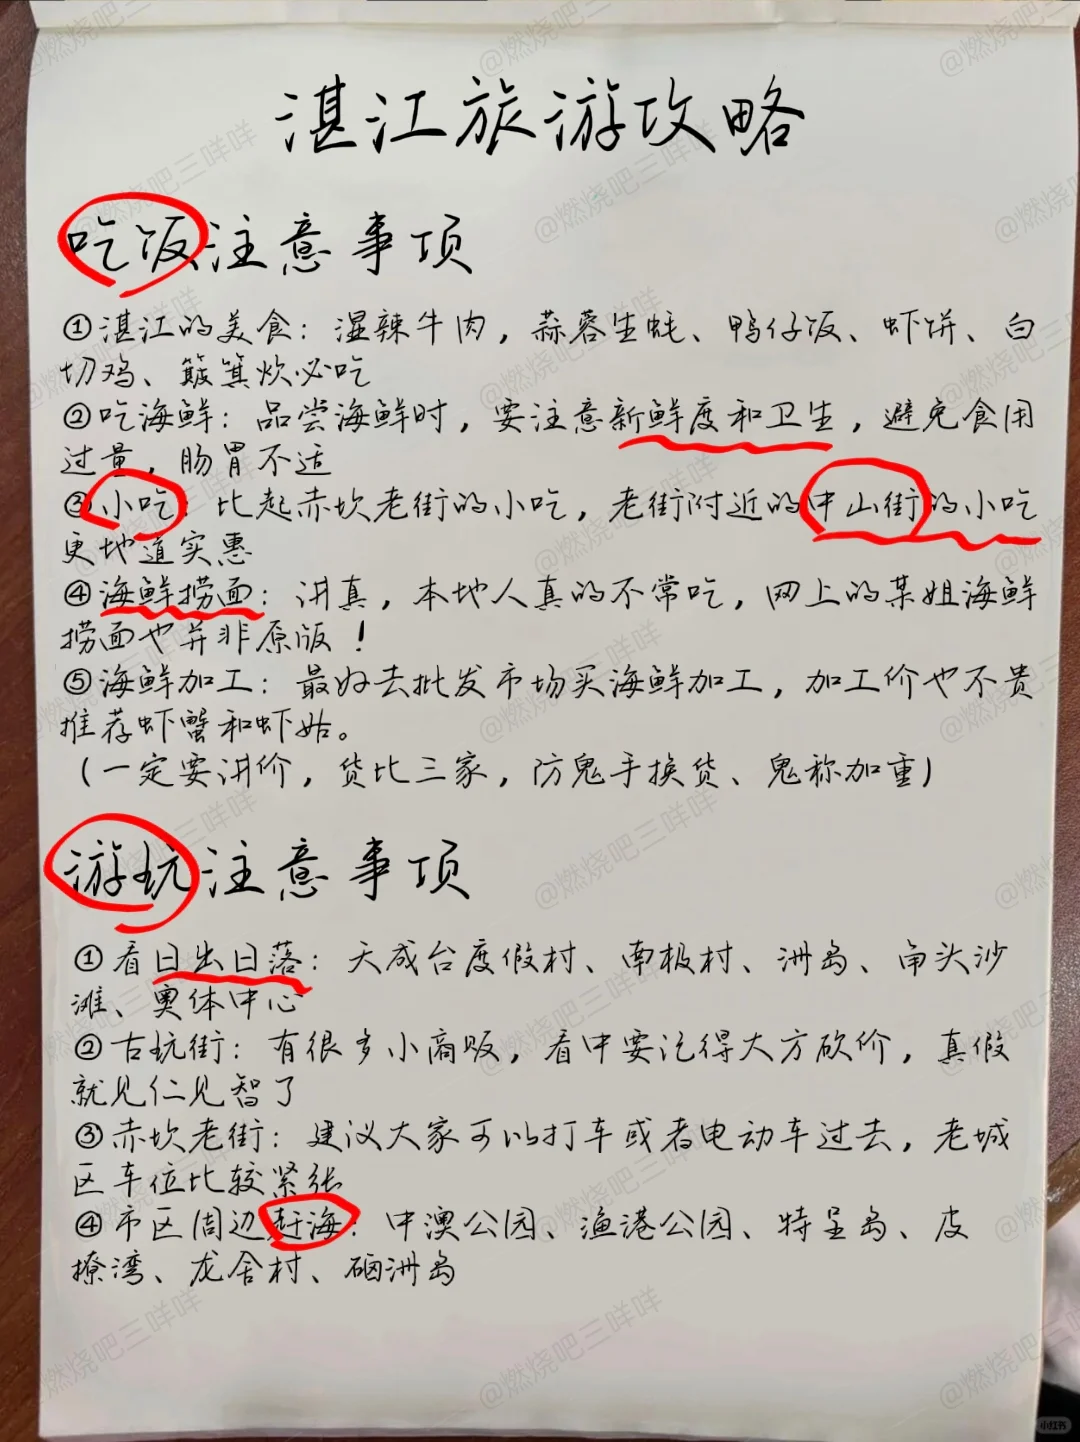 湛江旅游攻略
吃饭注意事项
①湛江的美食：湿辣牛肉，蒜蓉生蚝、鸭仔饭、虾饼、白
切鸡、簸箕炊必吃
②吃海鲜：品尝海鲜时，要注意新鲜度和卫生，避免食用
过量，肠胃不适
③小吃：比起赤坎老街的小吃，老街附近的中山街的小吃
更地道实惠
④海鲜捞面：讲真，本地人真的不常吃，网上的某姐海鲜
捞面也并非原版！
⑤海鲜加工：最好去批发市场买海鲜加工，加工价也不贵
推荐虾蟹和虾姑。
（一定要讲价，货比三家，防鬼手换货、鬼称加重）
游玩注意事项
①看日出日落：天成台度假村、南极村、洲岛、角头沙
滩、奥体中心
②古玩街：有很多小商贩，看中要记得大方砍价，真假
就见仁见智了
③赤坎老街：建议大家可以打车或者电动车过去，老城
区车位比较紧张
④市区周边赶海：中澳公园、渔港公园、特呈岛、皮
撩湾、龙舍村、硇洲岛
@燃烧吧三咩咩
小红书